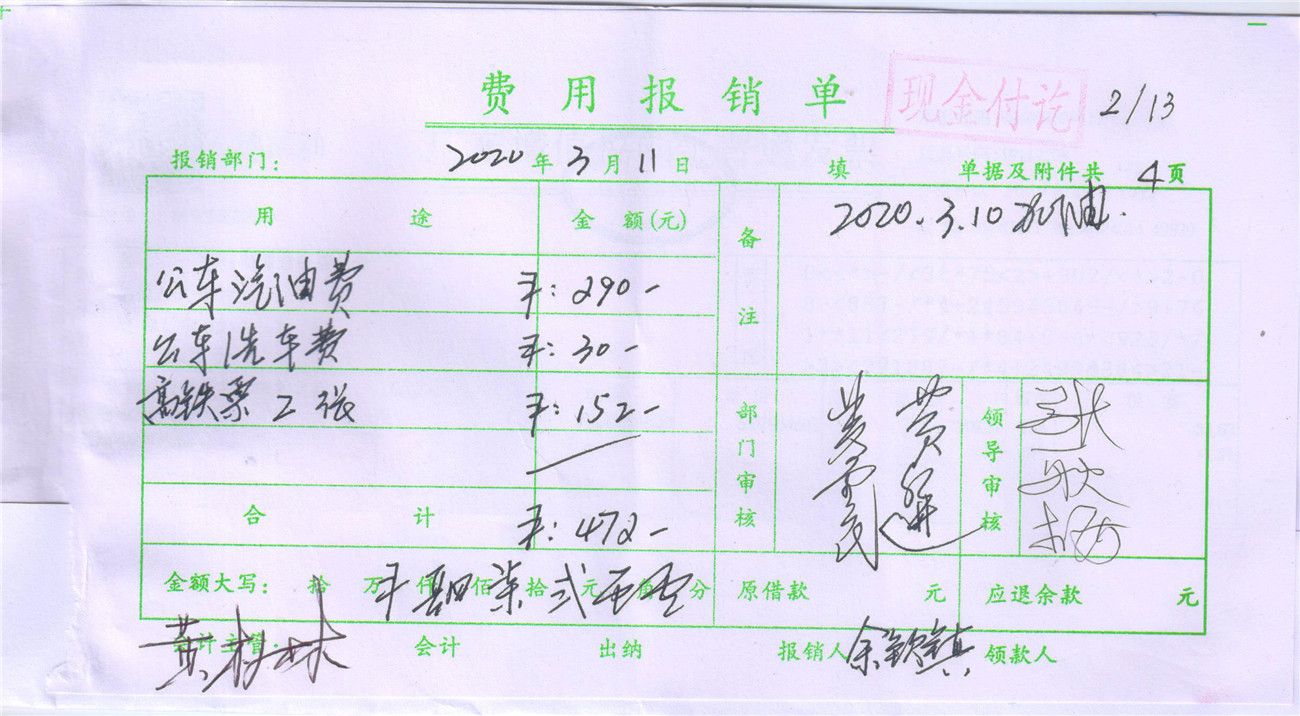 费用报销单 现金付讫 2/13
报销部门: 2020年3月11日 填 单据及附件共4页
用途 金额(元) 备注 2020.3.10加油.
公车汽油费 ¥:290-
公车洗车费 ¥:30-
高铁票2张 ¥:152-
合计 ¥:472-
部门审核 领导审核
金额大写: 拾万仟肆佰柒拾弍元角分 原借款 元 应退余款 元
会计主管: 黄 林 会计 出纳 报销人 余钦镇 领款人